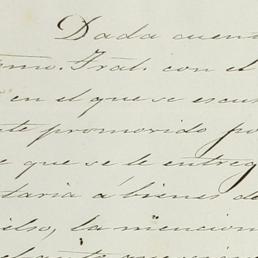 Dada cuent
Exmo. Gral. con el
en el que se escu
te promovido po
e que se le entreg
taria á bienes de
ilso, la mencion